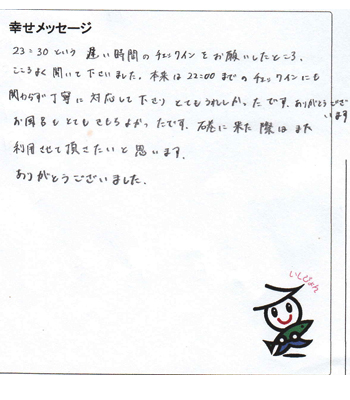 幸せメッセージ
23:30という遅い時間のチェックインをお願いしたところ、
こころよく聞いて下さいました。本来は22:00までのチェックインにも
関わらず丁寧に対応して下さりとてもうれしかったです。ありがとうござ
います
お風呂もとてもきもちよかったです。石巻に来た際はまた
利用させて頂きたいと思います。
ありがとうございました。
いしぴょん